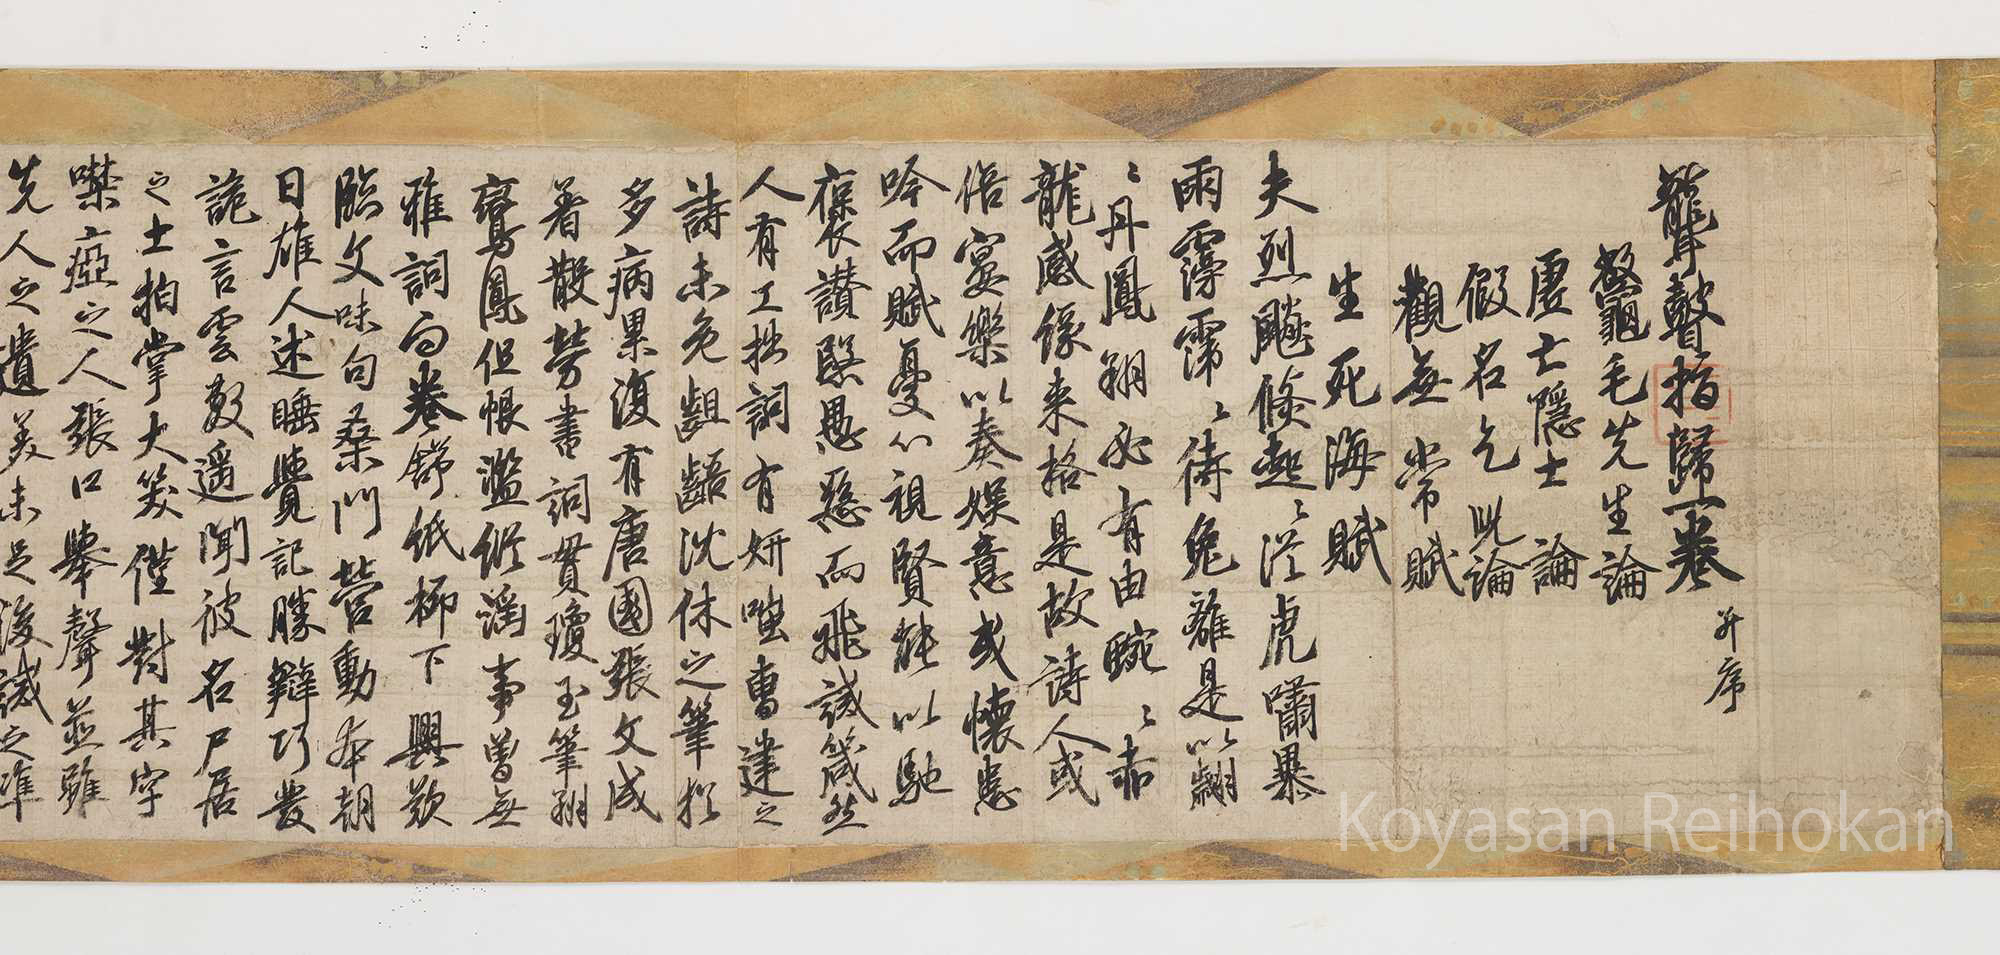 聾瞽指歸一卷 并序
鼇毛先生論
虛亡隱士論
假名乞兒論
觀無常賦
生死海賦
夫烈飈倏起〻從虎嘯暴
雨霶霈〻待兔離是以翩
〻丹鳳翔必有由蜿〻赤
龍感緣来格是故詩人或
侶宴樂以奏娛意或懷患
吟而賦憂心視賢能以馳
褒讃鑒愚惡而飛誡箴然
人有工拙詞有妍嗤曹建之
詩未免齟齬沈休之筆猶
多病累復有唐國張文成
著散勞書詞貫瓊玉筆翔
鸞鳳但恨濫縱淫事曾無
雅詞面卷舒紙柳下興歎
臨文味句桑門營動本朝
日雄人述睡覺記勝辯巧發
詭言雲敷遥聞彼名尸居
之士拍掌大笑僅對其字
噤瘂之人張口舉聲並雖
先人之遺美未足後誡之準
Koyasan Reihokan